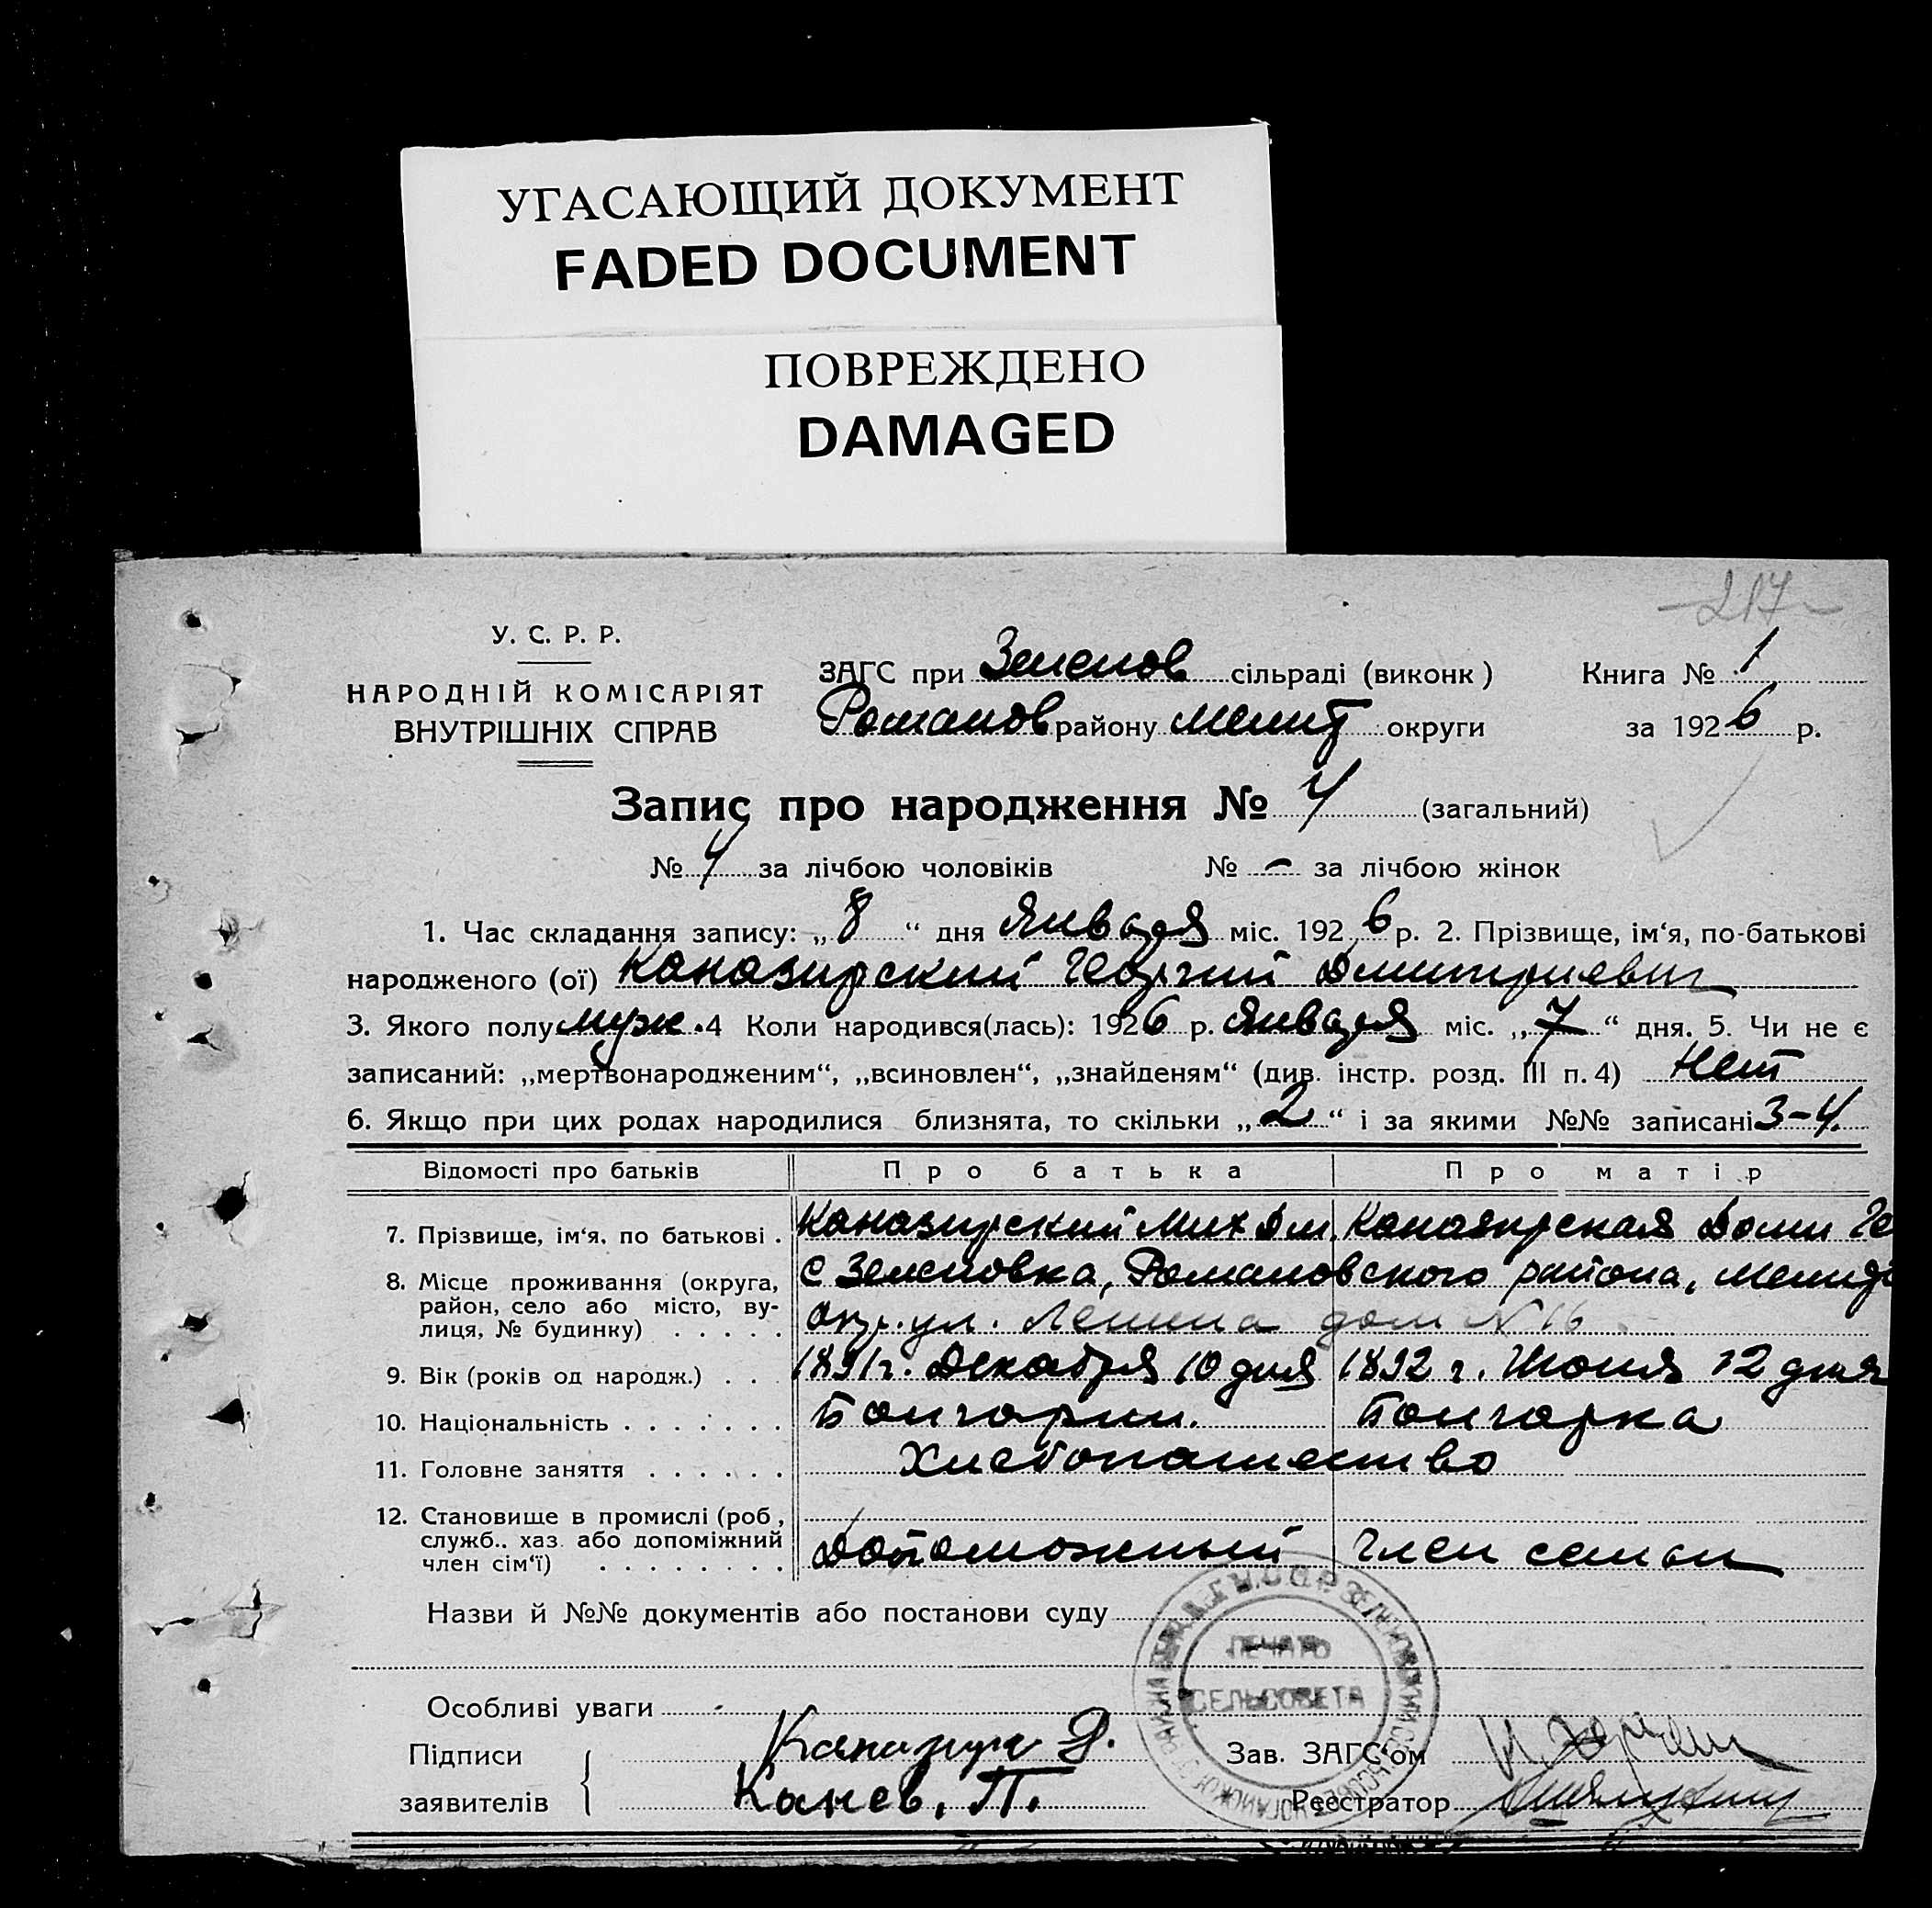 УГАСАЮЩИЙ ДОКУМЕНТ
FADED DOCUMENT
ПОВРЕЖДЕНО
DAMAGED
217
У. С. Р. Р.
НАРОДНІЙ КОМІСАРІЯТ
ВНУТРІШНІХ СПРАВ
ЗАГС при Зеленов сільраді (виконк)
Романов району Мелит округи
Книга № 1
за 1926 р.
Запис про народження № 4 (загальний)
№ 4 за лічбою чоловіків № – за лічбою жінок
1. Час складання запису: „8“ дня Января міс. 1926 р. 2. Прізвище, ім‘я, по-батькові
народженого (ої) Каназирский Георгий Дмитриевич
3. Якого полу муж. 4 Коли народився(лась): 1926 р. Января міс. „7“ дня. 5. Чи не є
записаний: „мертвонародженим“, „всиновлен“, „знайденям“ (див. інстр. розд. III п. 4) Нет
6. Якщо при цих родах народилися близнята, то скільки „2“ і за якими №№ записані 3-4.
Відомості про батьків Про батька Про матір
7. Прізвище, ім‘я, по батькові . Каназирский Дм. Каназирская Домн Ге
8. Місце проживання (округа, район, село або місто, ву-
лиця, № будинку) . . . . . с Зеленовка, Романовского района, Мелит
окр. ул. Ленина дом № 16
9. Вік (років од народж.) . . . 1891 г. Декабря 10 дня 1892 г. Июня 12 дня
10. Національність . . . . . . . Болгарин. Болгарка
11. Головне заняття . . . . . . Хлебопашество
12. Становище в промислі (роб,
служб.. хаз. або допоміжний
член сім‘ї) . . . . . . . . Допоможный член семьи
Назви й №№ документів або постанови суду
ПЕЧАТЬ
СЕЛЬСОВЕТА
Особливі уваги
Підписи
заявителів
Д.
Канев. П.
Зав. ЗАГС‘ом
Реєстратор